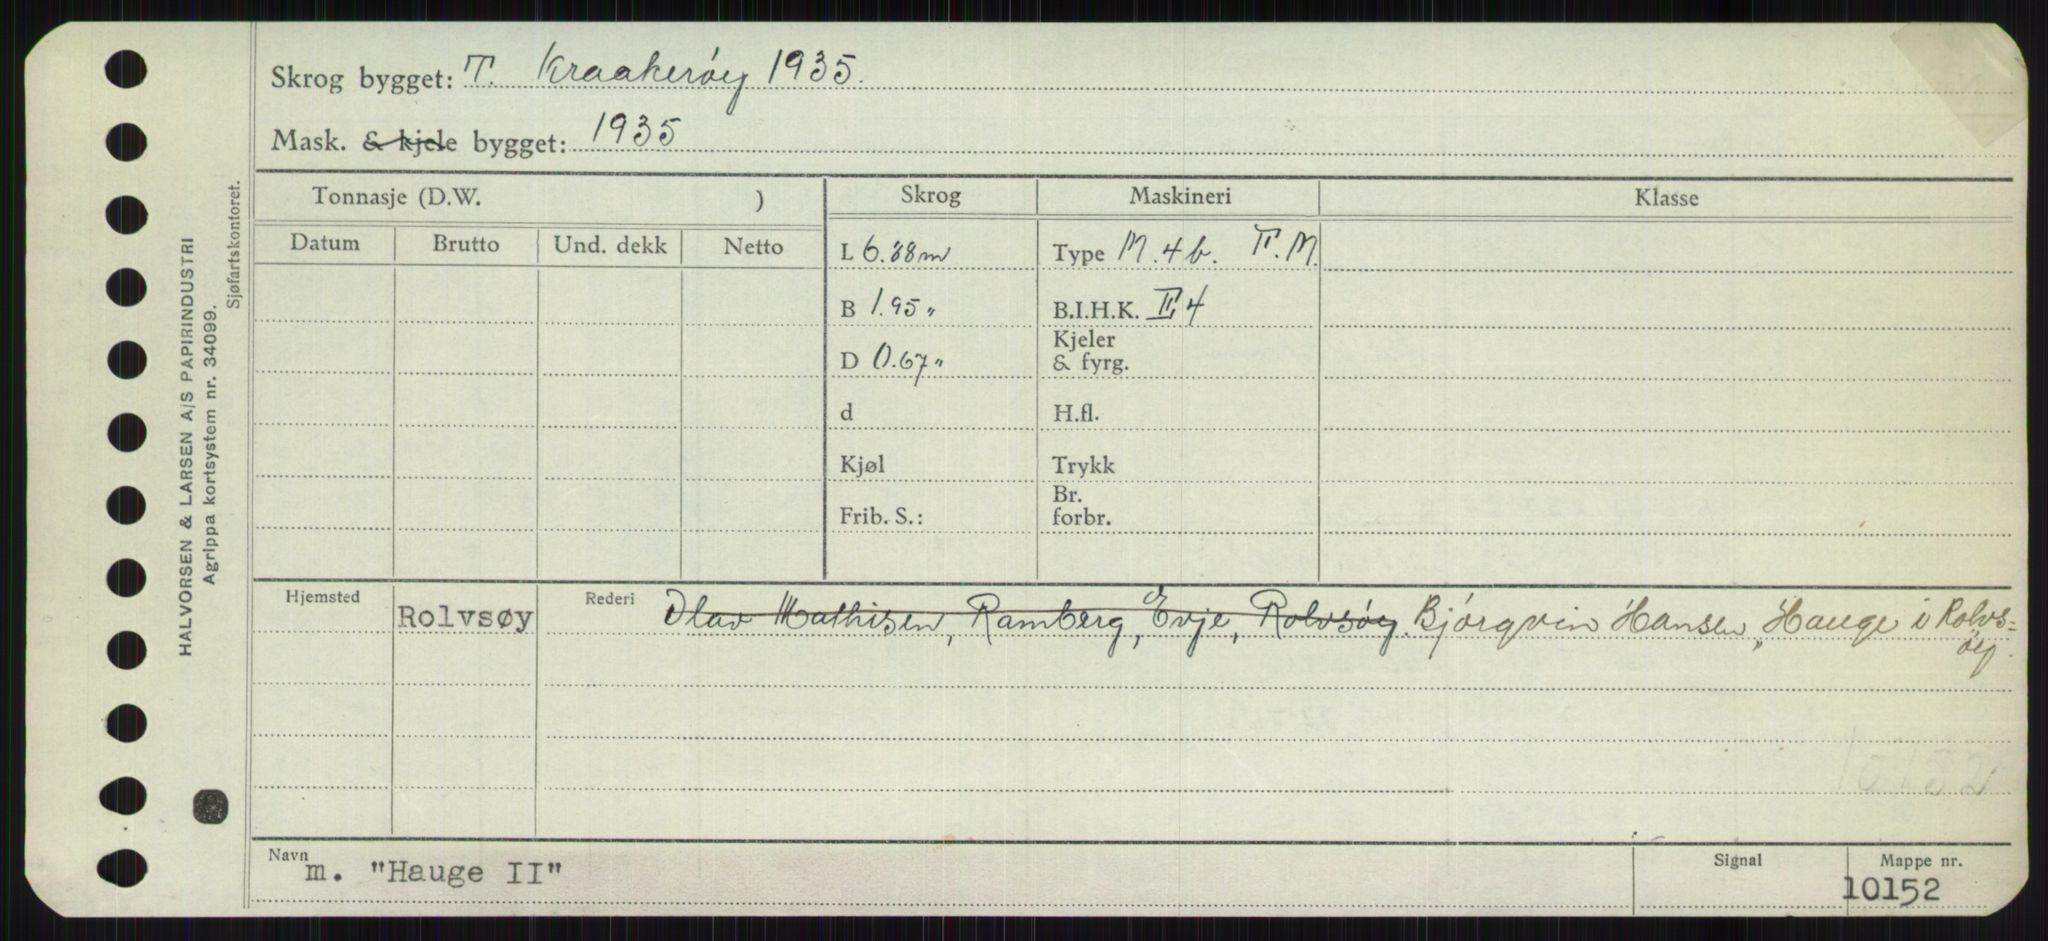 Skrog bygget: T. Kraakerøy 1935.
Mask. & kjele bygget: 1935
Tonnasje (D.W. ) Skrog Maskineri Klasse
Datum Brutto Und. dekk Netto
L 6.88m Type M. 4 b. II. M.
B 1.95 " B.I.H.K. II 4
Kjeler
D 0.67 " & fyrg.
d H.fl.
Kjøl Trykk
Br.
Frib. S.: forbr.
Hjemsted Rolvsøy Rederi Olav Mathisen, Ramberg, Evje, Rolvsøy. Bjørgvin Hansen, "Hauge i Rolvs=
øy.
10152
Navn m. "Hauge II" Signal Mappe nr.
10152
HALVORSEN & LARSEN A/S PAPIRINDUSTRI
Agrippa kortsystem nr. 34099.
Sjøfartskontoret.